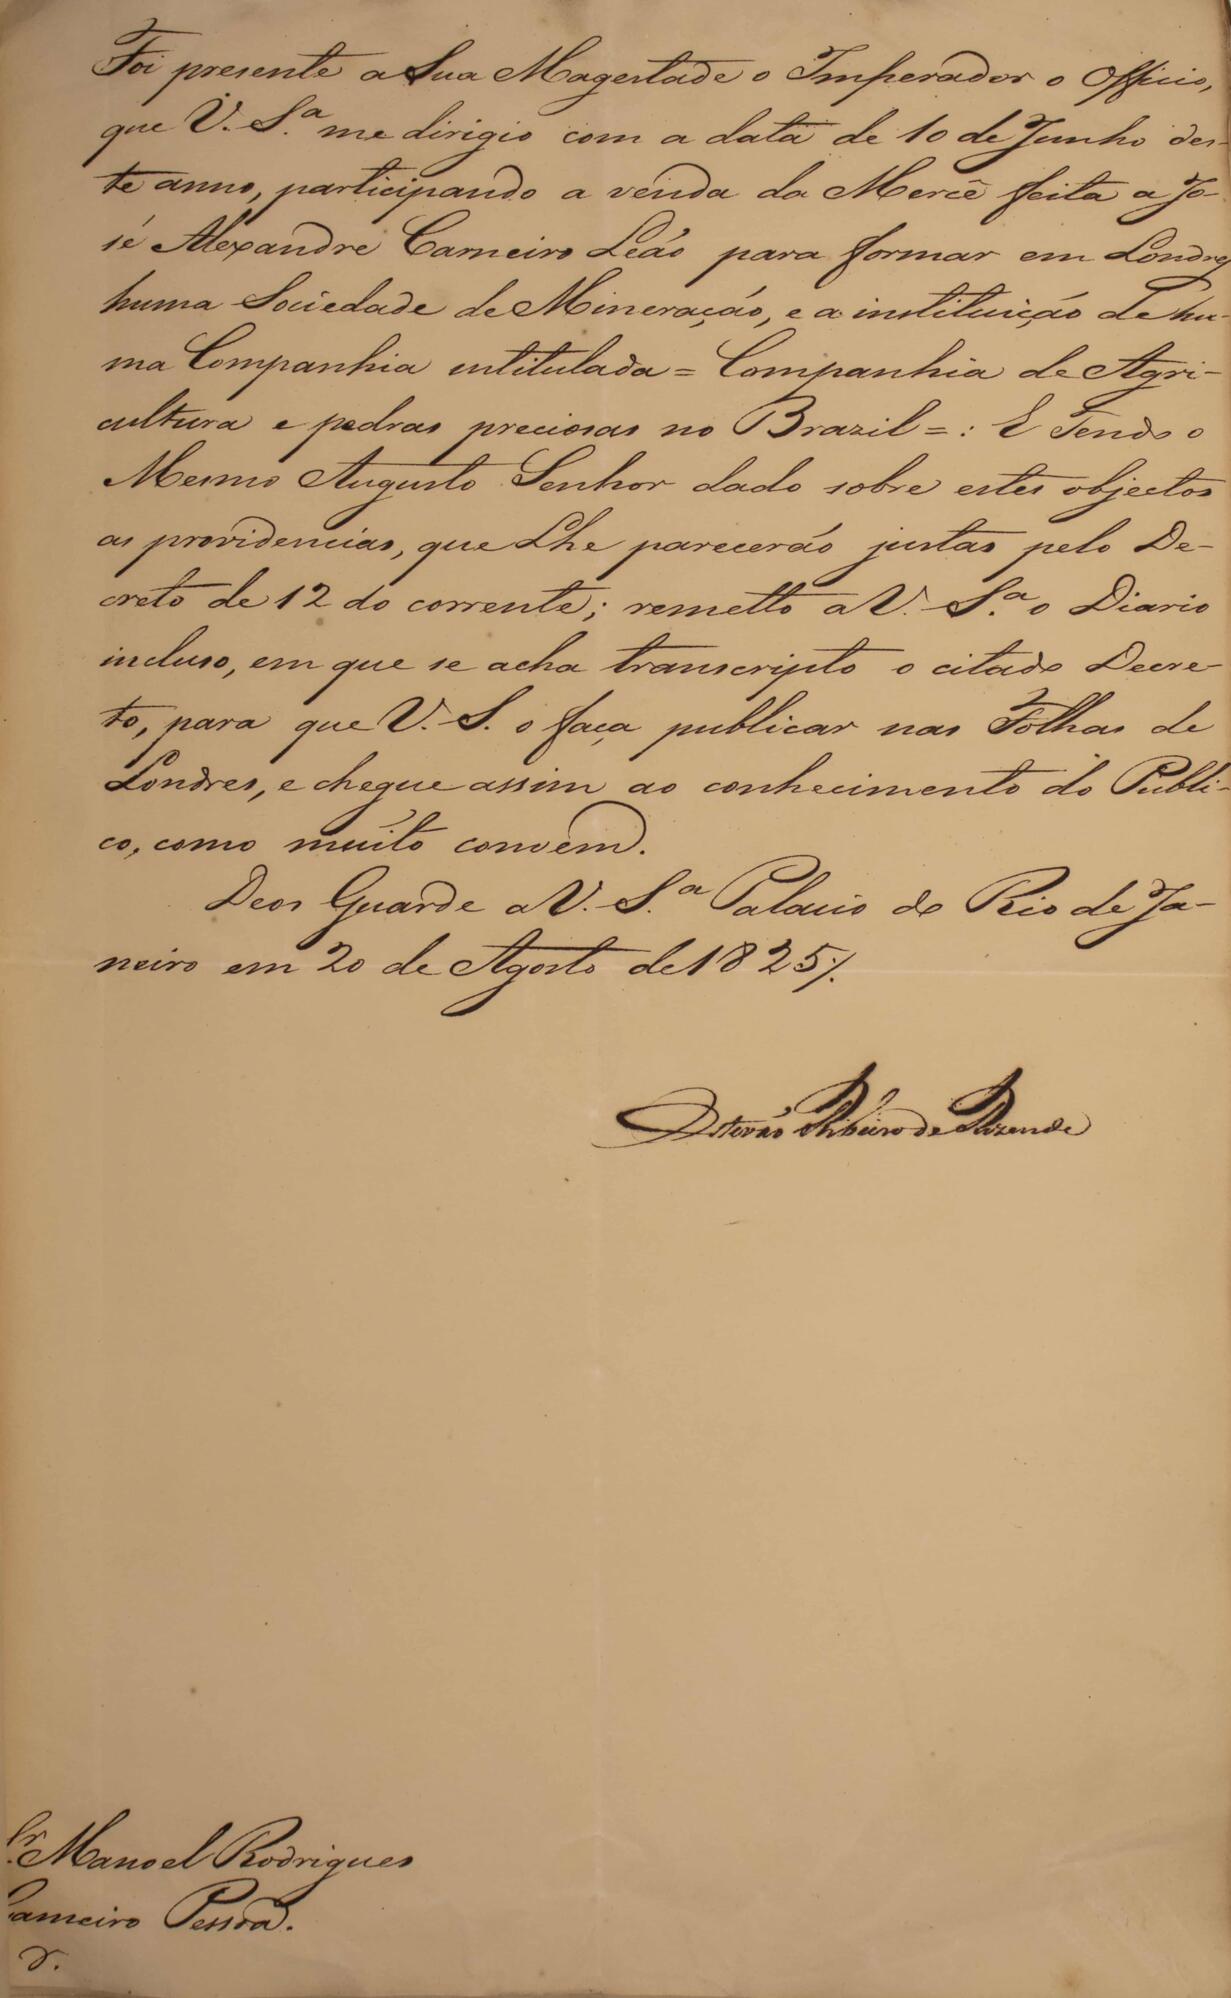 Foi presente a Sua Magestade o Imperador o Officio,
que V. S.ª me dirigio com a data de 10 de Junho des-
te anno, participando a venda da Mercê feita a Jo-
sé Alexandre Carneiro Leão para formar em Londres
huma Sociedade de Mineração, e a instituição de hu-
ma Companhia intitulada = Companhia de Agri-
cultura e pedras preciosas no Brazil = : E Tendo o
Mesmo Augusto Senhor dado sobre estes objectos
as providencias, que Lhe parecerão justas pelo De-
creto de 12 do corrente; remetto a V. S.ª o Diario
incluso, em que se acha transcripto o citado Decre-
to, para que V. S. o faça publicar nas Folhas de
Londres, e chegue assim ao conhecimento do Publi-
co, como muito convem.
Deos Guarde a V. S.ª Palacio do Rio de Ja-
neiro em 20 de Agosto de 1825 /.
Estevão Ribeiro de Rezende
Sr. Manoel Rodrigues
Gameiro Pessoa.